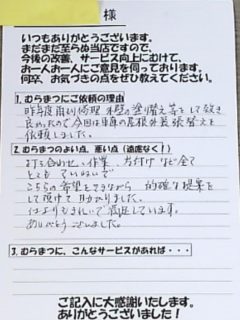 様
いつもありがとうございます。
まだまだ至らぬ当店ですので、
今後の改善、サービス向上にむけて、
お一人お一人にご意見を伺っております。
何卒、お気づきの点をぜひ教えてください。
1. むらまつにご依頼の理由
昨年度雨戸修理 木壁の塗替え等をして頂き
良かったので今回は車庫の屋根外装張替えを
依頼しました。
2. むらまつのよい点、悪い点（遠慮なく！）
打ち合わせ、作業、片付けなど全て
とても ていねいで
こちらの希望をききながら 的確な提案を
して頂けて 助かりました。
仕上りもきれいで満足しています。
ありがとうございました。
3. むらまつに、こんなサービスがあれば・・・
ご記入に大感謝いたします。
ありがとうございました！